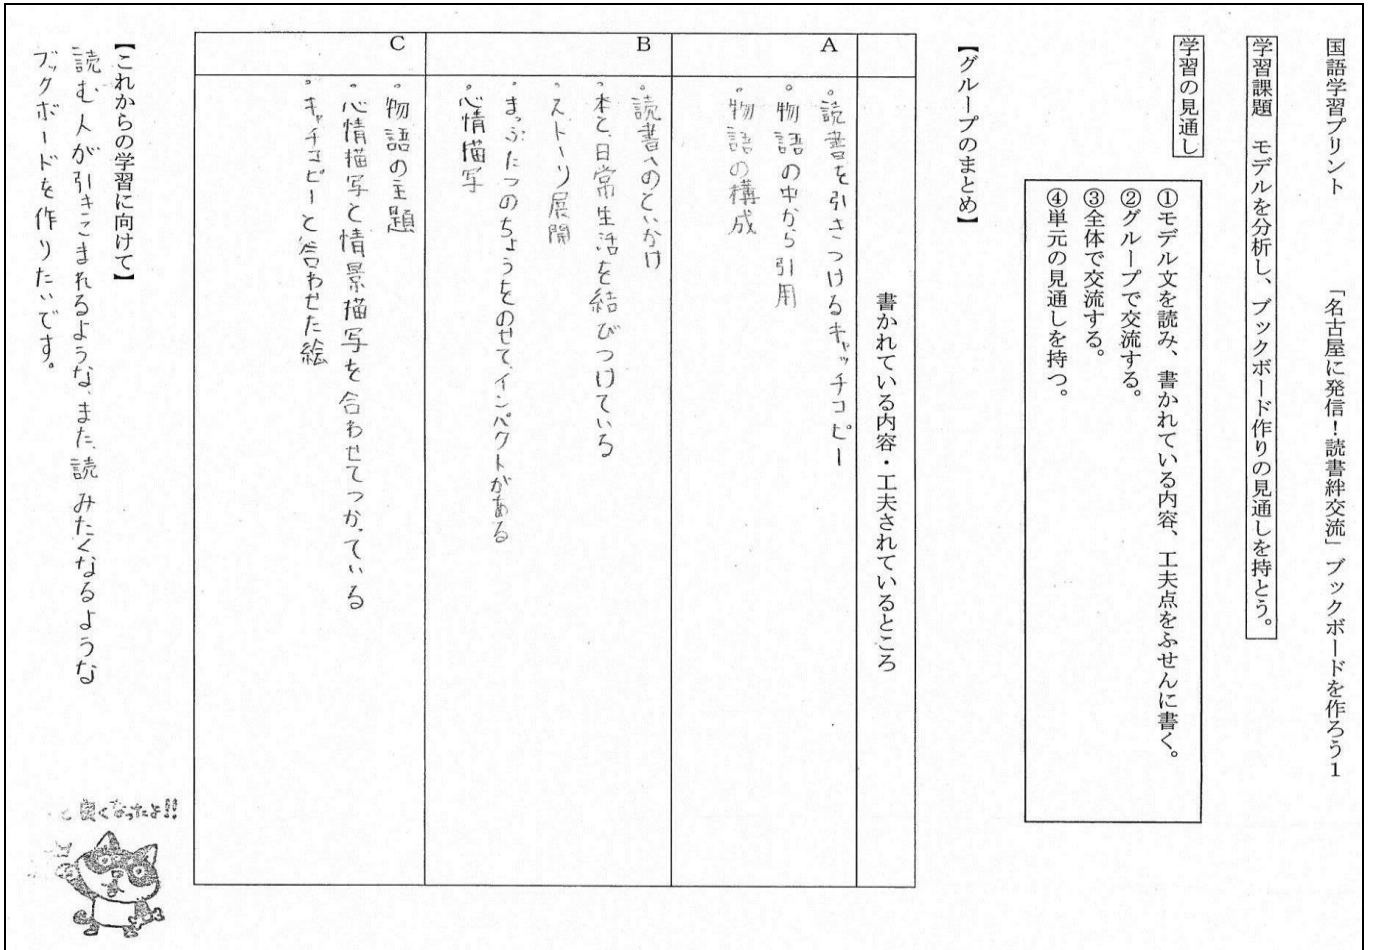 国語学習プリント　「名古屋に発信！読書絆交流」ブックボードを作ろう1
学習課題　モデルを分析し、ブックボード作りの見通しを持とう。
学習の見通し
①モデル文を読み、書かれている内容、工夫点をふせんに書く。
②グループで交流する。
③全体で交流する。
④単元の見通しを持つ。
【グループのまとめ】
書かれている内容・工夫されているところ
A
・読書を引きつけるキャッチコピー
・物語の中から引用
・物語の構成
B
・読書へのといかけ
・本と、日常生活を結びつけている
・ストーリ展開
・まっぷたつのちょうをのせて、インパクトがある
・心情描写
C
・物語の主題
・心情描写と情景描写を合わせてつかっている
・キャチコピーと合わせた絵
【これからの学習に向けて】
読む人が引きこまれるような、また、読みたくなるような
ブックボードを作りたいです。
と良くなったよ!!